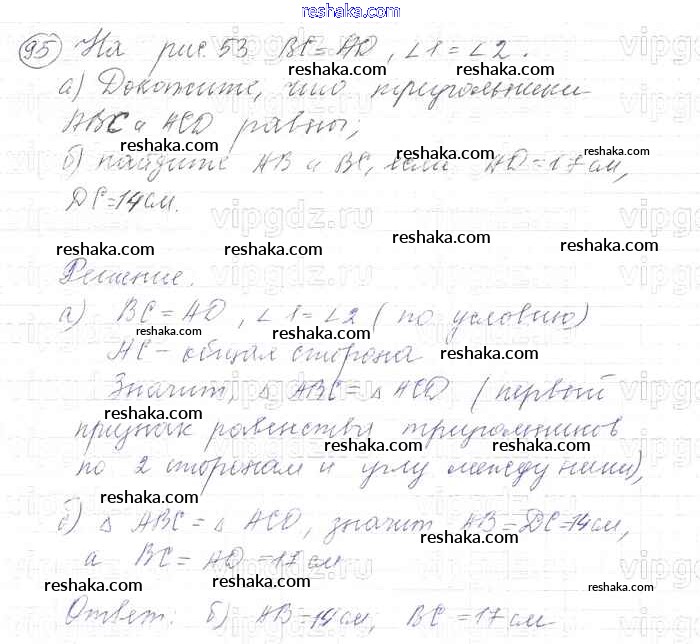 reshaka.com
95 На рис. 53 BC = AD, ∠1 = ∠2.
reshaka.com reshaka.com reshaka.com
а) Докажите, что треугольники
ABC и ACD равны;
reshaka.com reshaka.com reshaka.com
б) найдите AB и BC, если AD = 17 см,
DC = 14 см.
vipgdz.ru
reshaka.com reshaka.com reshaka.com reshaka.com
Решение.
а) BC = AD, ∠1 = ∠2 (по условию)
reshaka.com reshaka.com
AC - общая сторона
reshaka.com
Значит, △ ABC = △ ACD (первый
reshaka.com reshaka.com reshaka.com
признак равенства треугольников
reshaka.com reshaka.com
по 2 сторонам и углу между ними),
reshaka.com
б) △ ABC = △ ACD, значит AB = DC = 14 см,
reshaka.com
а BC = AD = 17 см
reshaka.com reshaka.com reshaka.com
Ответ: б) AB = 14 см; BC = 17 см
reshaka.com reshaka.com